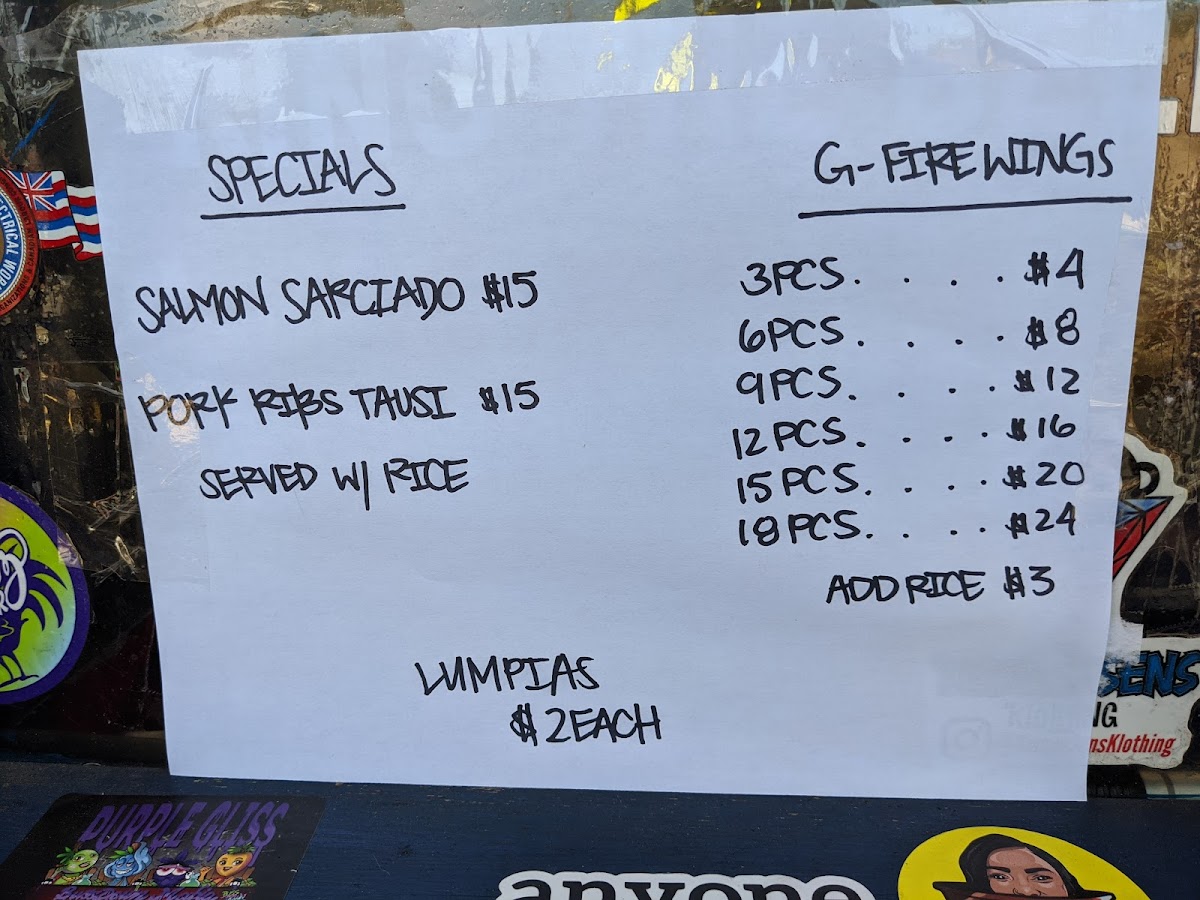 SPECIALS
SALMON SARCIADO $15
PORK RIBS TAUSI $15
SERVED W/ RICE
G-FIRE WINGS
3PCS. . . . . $4
6PCS. . . . . $8
9PCS. . . . . $12
12 PCS. . . . . $16
15 PCS. . . . . $20
18 PCS. . . . . $24
ADD RICE $3
LUMPIAS
$2 EACH
SENS
NG
nsKlothing
PURPLE GLISS
anyone